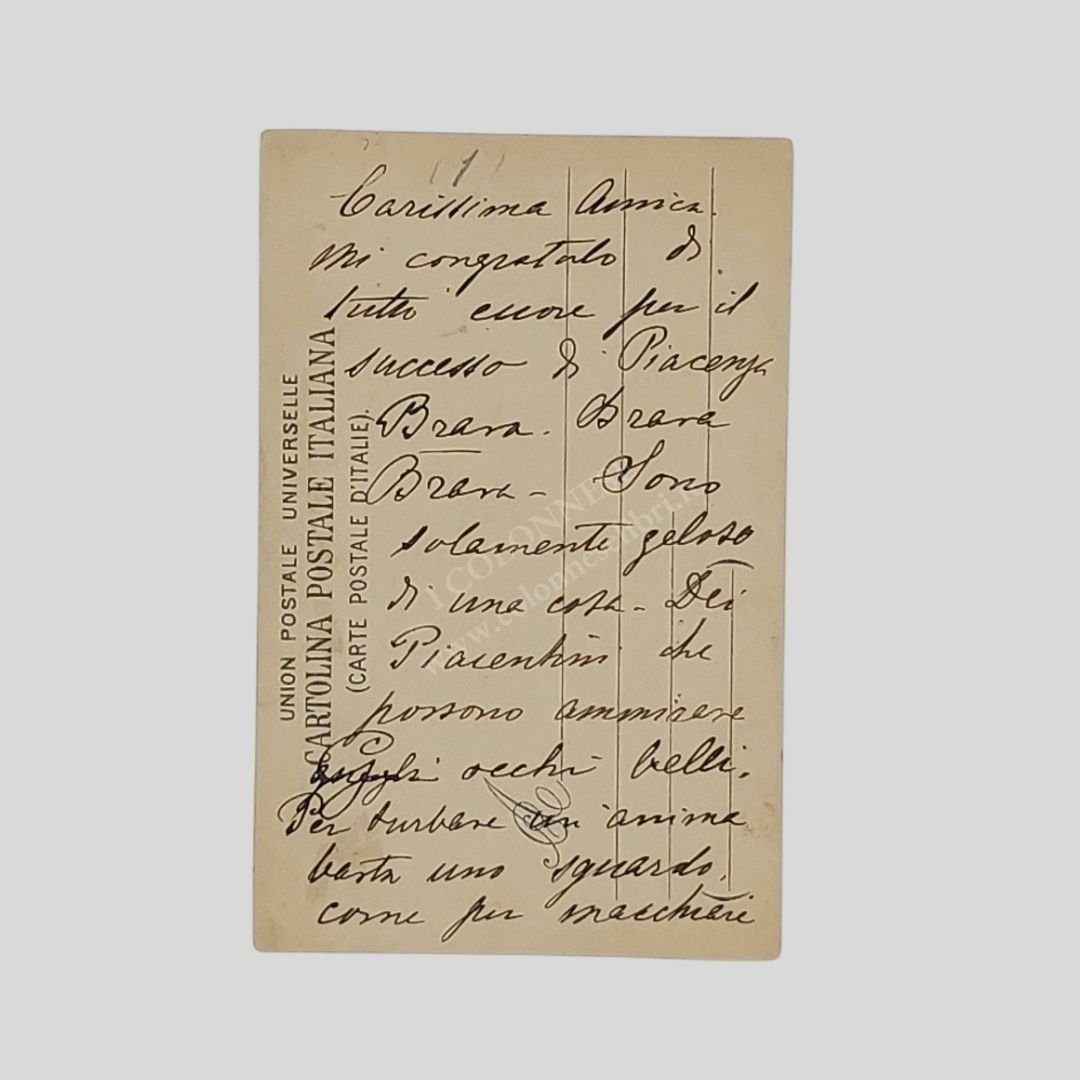 (1)
Carissima Amica.
Mi congratulo di
tutto cuore per il
successo di Piacenza
Brava. Brava
Brava - Sono
solamente geloso
di una cosa - Dei
Piacentini che
possono ammirare
occhi belli.
Per turbare un anima
basta uno sguardo,
come per macchiare
UNION POSTALE UNIVERSELLE
CARTOLINA POSTALE ITALIANA
(CARTE POSTALE D'ITALIE).
I COLONNE